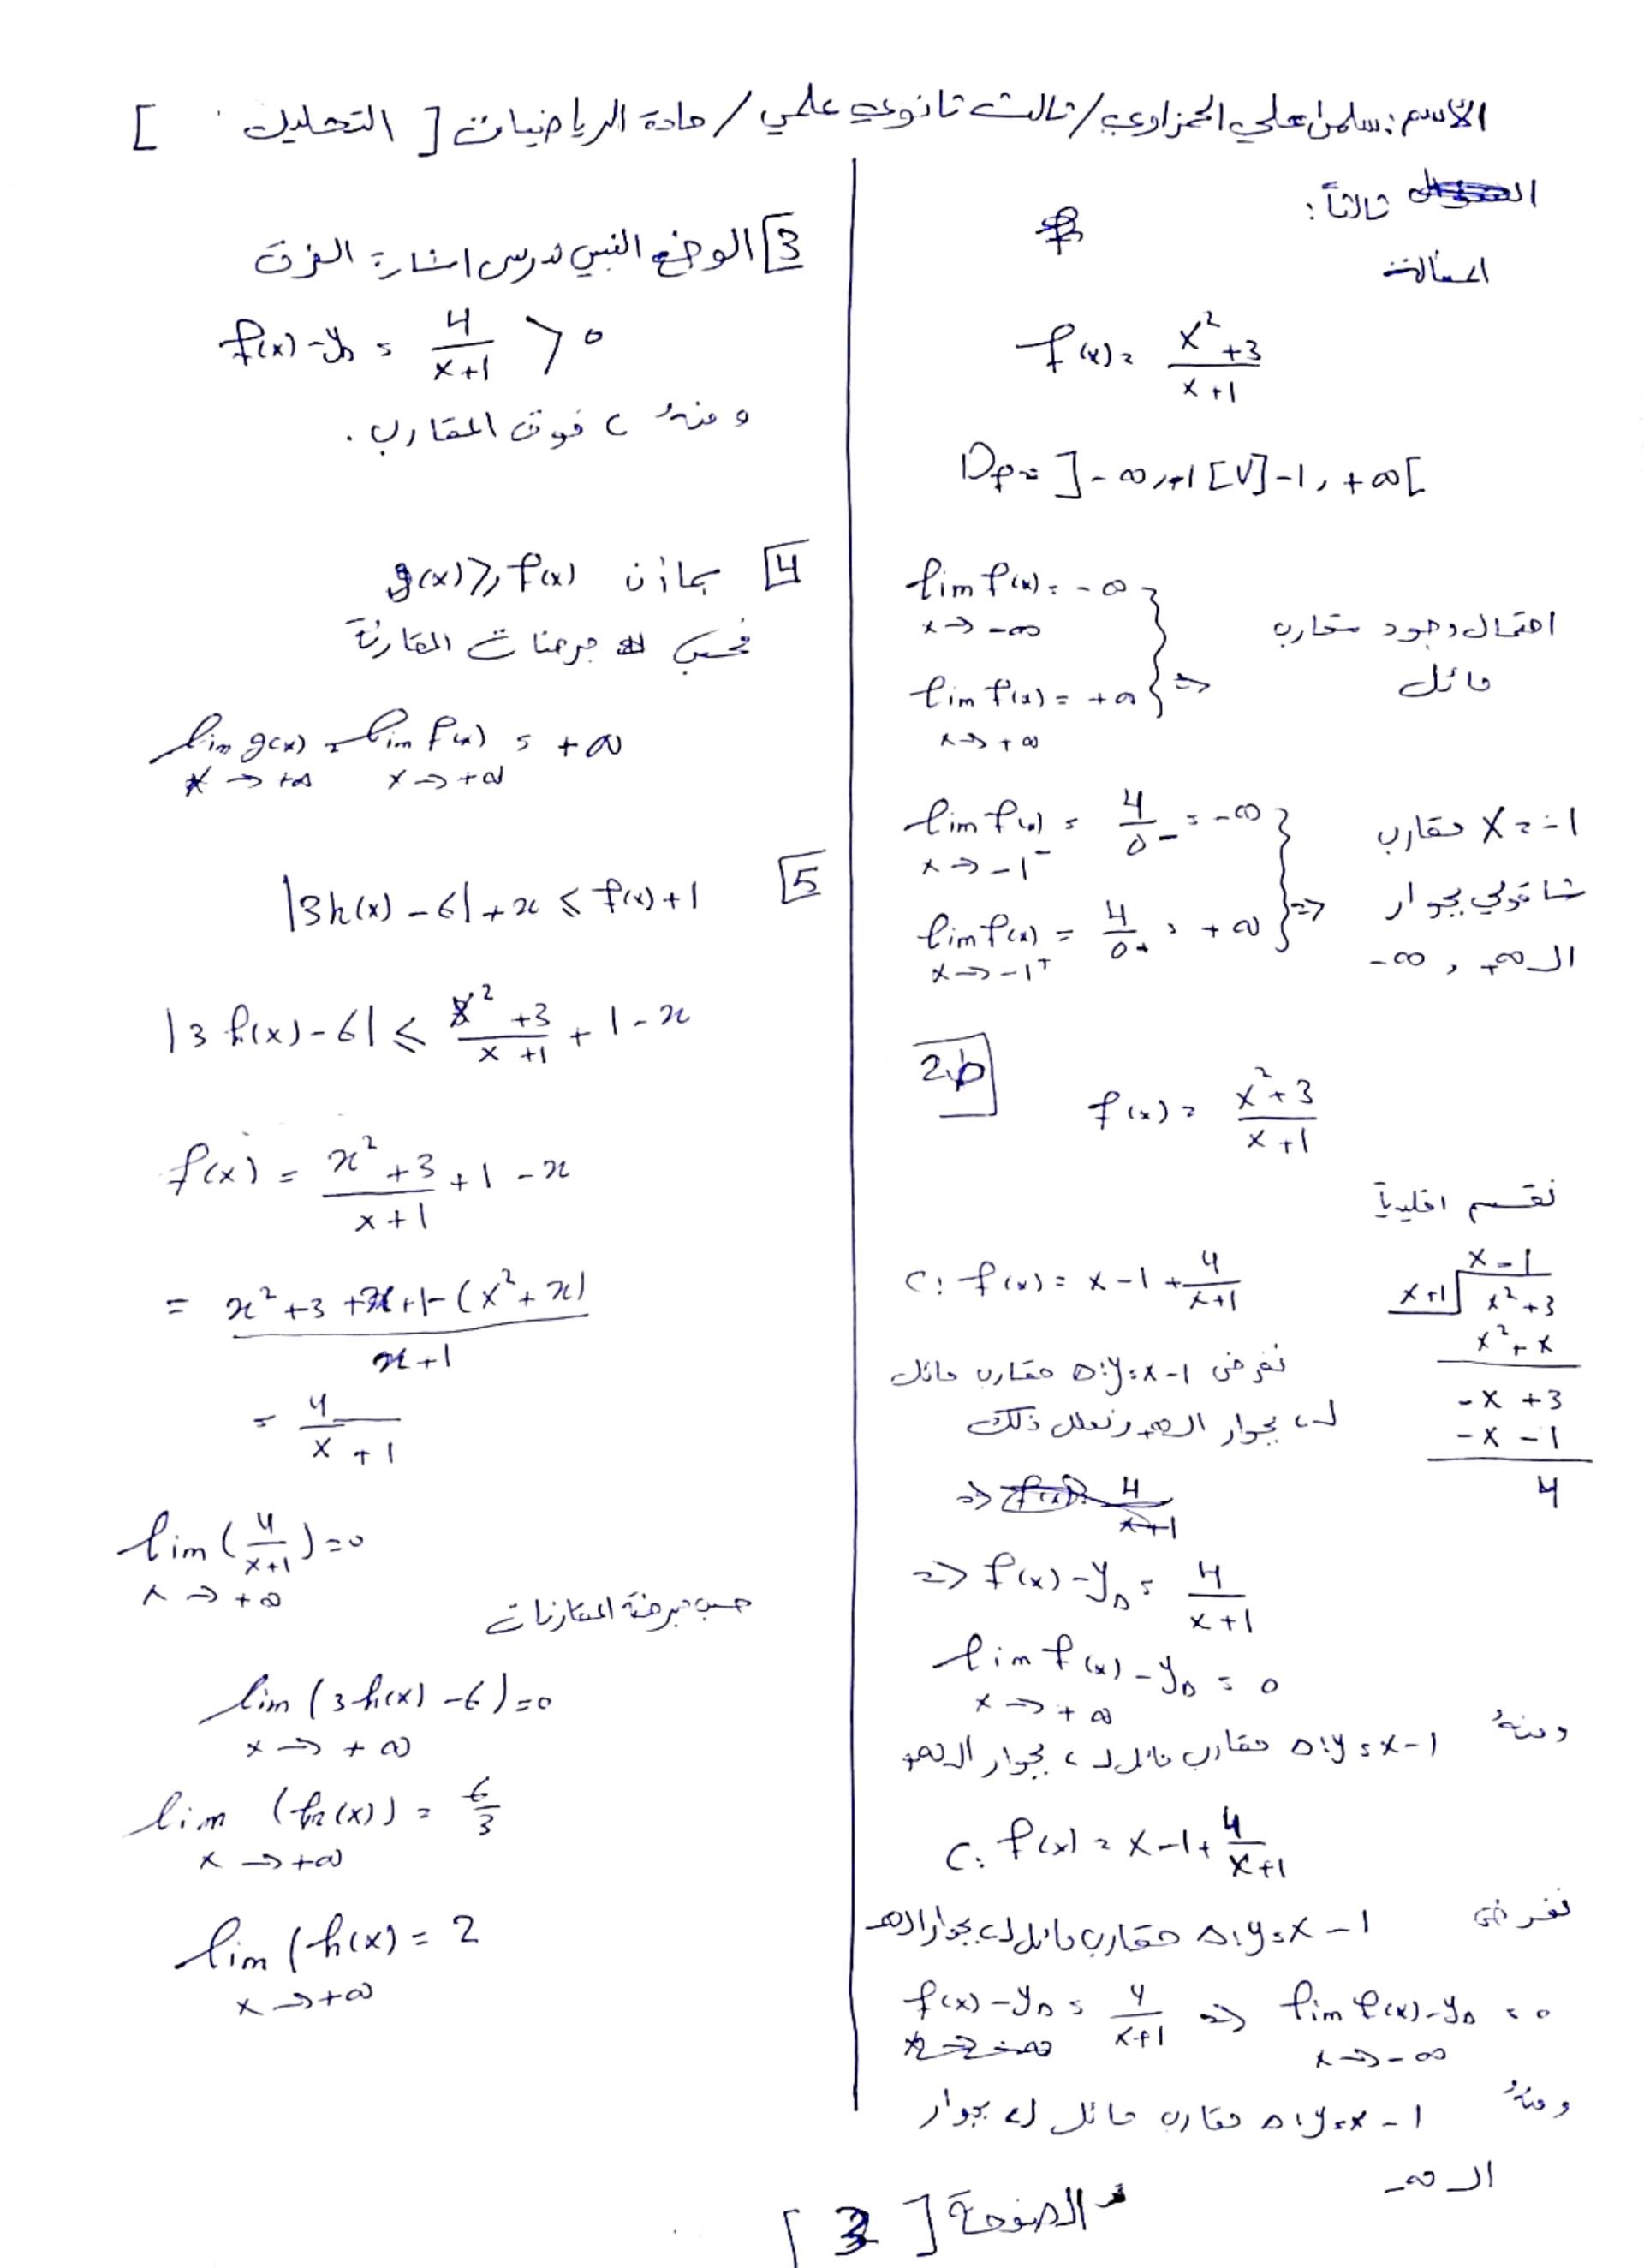 الاسم: سلمى علي الحمزاوي / ثالث ثانوي علمي / مادة الرياضيات [ التحليل ]
ثالثاً:
المسألة
f(x) = \frac{x^2+3}{x+1}
Df = ]-∞, -1[ ∪ ]-1, +∞[
lim f(x) = -∞
x → -∞
lim f(x) = +∞
x → +∞
} ⇒ احتمال وجود مقارب مائل
lim f(x) = \frac{4}{0^-} = -∞
x → -1^-
lim f(x) = \frac{4}{0^+} = +∞
x → -1^+
} ⇒ x = -1 مقارب
شاقولي بجوار
ال +∞ , -∞
2.b
f(x) = \frac{x^2+3}{x+1}
نقسم اقليدياً
x-1
x+1 | x^2+3
x^2+x
-x+3
-x-1
4
C: f(x) = x-1+\frac{4}{x+1}
نفرض Δ: y = x-1 مقارب مائل
لـ C بجوار ال +∞ ونعلل ذلك
⇒ f(x) - y_Δ = \frac{4}{x+1}
lim f(x) - y_Δ = 0
x → +∞
ومنهُ Δ: y = x-1 مقارب مائل لـ C بجوار ال +∞
C: f(x) = x-1+\frac{4}{x+1}
نفرض Δ: y = x-1 مقارب مائل لـ C بجوار ال -∞
f(x) - y_Δ = \frac{4}{x+1} ⇒ lim f(x) - y_Δ = 0
x → -∞
ومنهُ Δ: y = x-1 مقارب مائل لـ C بجوار
ال -∞
3 الوضع النسبي ندرس اشارة الفرق
f(x) - y_Δ = \frac{4}{x+1} > 0
ومنهُ C فوق المقارب.
4 بما أن g(x) ≥ f(x)
فحسب مبرهنات المقارنة
lim g(x) = lim f(x) = +∞
x → +∞ x → +∞
5
|3h(x) - 6| + x ≤ f(x) + 1
|3h(x) - 6| ≤ \frac{x^2+3}{x+1} + 1 - x
f(x) = \frac{x^2+3}{x+1} + 1 - x
= \frac{x^2+3+x+1-(x^2+x)}{x+1}
= \frac{4}{x+1}
lim (\frac{4}{x+1}) = 0
x → +∞
حسب مبرهنة المقارنات
lim (3h(x) - 6) = 0
x → +∞
lim (h(x)) = \frac{6}{3}
x → +∞
lim (h(x) = 2
x → +∞
الصفحة [ 3 ]